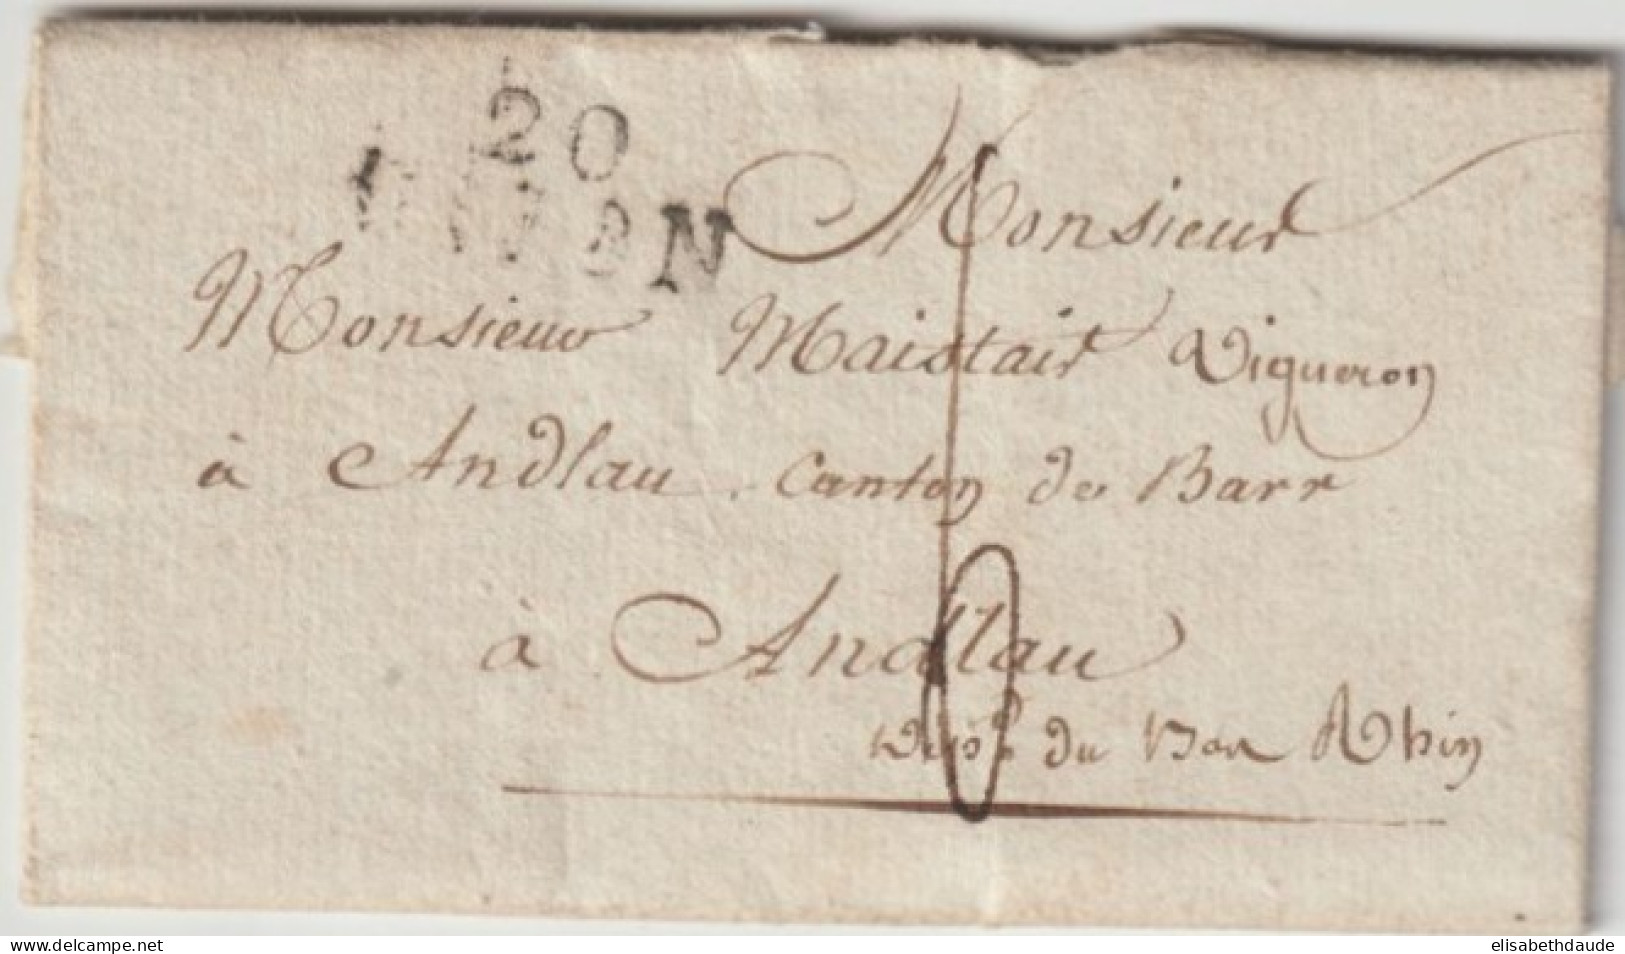 20
Monsieur
Monsieur Maistair Vigneron
à Andlau. Canton de Barr
à Andlau
Dép.t du Bas Rhin
www.delcampe.net
elisabethdaude